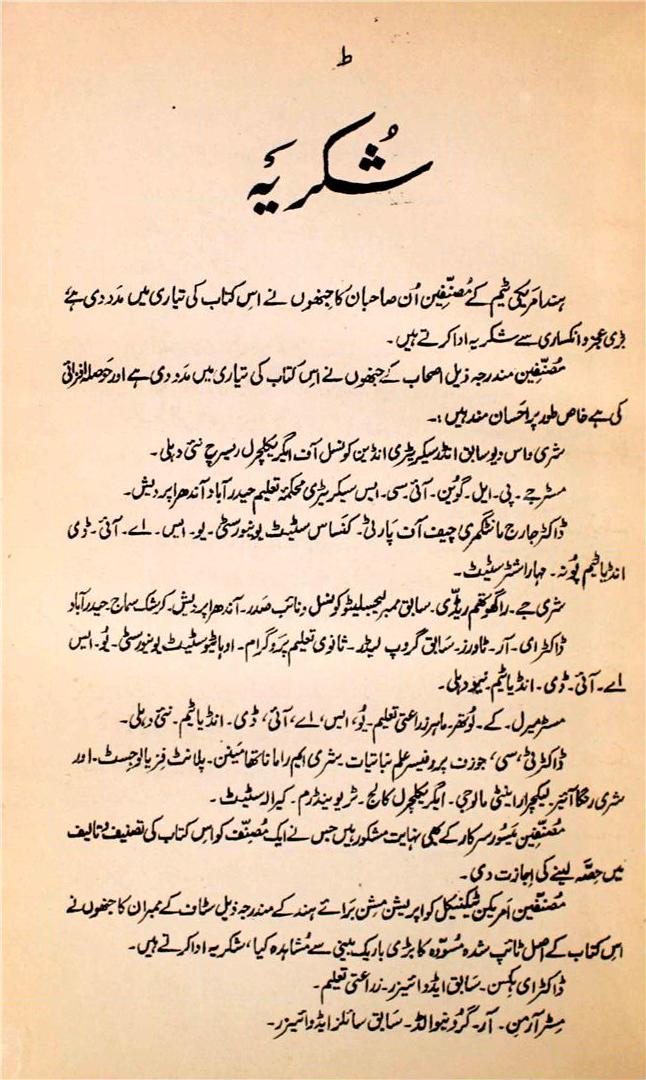 ط
شُکریۂ
ہند امریکی ٹیم کے مُصنّفین اُن صاحبان کا جنھوں نے اس کتاب کی تیاری میں مَدد دی ہے
بڑی عجز و انکساری سے شکریہ ادا کرتے ہیں۔
مُصنّفین مندرجہ ذیل اصحاب کے جنھوں نے اس کتاب کی تیاری میں مدد دی ہے اور حوصلہ افزائی
کی ہے خاص طور پر احسان مند ہیں :۔
شری واس دیو سابق انڈر سیکریٹری انڈین کونسل آف ایگریکلچرل ریسرچ نئی دہلی۔
مسٹر جے۔ پی۔ ایل۔ گوین۔ آئی۔ سی۔ ایس سیکریٹری محکمۂ تعلیم حیدرآباد آندھرا پردیش۔
ڈاکٹر جارج مانٹگمری چیف آف پارٹی۔ کنساس سٹیٹ یونیورسٹی۔ یو۔ ایس۔ اے۔ آئی۔ ڈی
انڈیا ٹیم پُونہ۔ مہاراشٹر سٹیٹ۔
شری جے۔ راگھوتھم ریڈّی۔ سابق ممبر لیجسلیٹو کونسل و نائب صدر۔ آندھرا پردیش۔ کرشک سماج۔ حیدرآباد
ڈاکٹر ای۔ آر۔ ٹاورز۔ سَابق گروپ لیڈر۔ ثانوی تعلیم پروگرام۔ اوہائیو سٹیٹ یونیورسٹی۔ یُو۔ ایس
اے۔ آئی۔ ڈی۔ انڈیا ٹیم۔ نیو دہلی۔
مسٹر میرل۔ کے۔ لُوتھر۔ ماہر زراعتی تعلیم۔ یُو، ایس، اے، آئی، ڈی۔ انڈیا ٹیم۔ نئی دہلی۔
ڈاکٹر ٹی، سی، جوزف پروفیسر علم نباتیات۔ شری ایم راماناتھا مینن۔ پلانٹ فزیالوجسٹ۔ اور
شری رنگا آئیر۔ لیکچرار اینٹی مالوجی۔ ایگریکلچرل کالج۔ ٹریوینڈرم۔ کیرالہ سٹیٹ۔
مُصنّفین میسُور سرکار کے بھی نہایت مشکور ہیں جس نے ایک مُصنّف کو اس کتاب کی تصنیف و تالیف
میں حصّہ لینے کی اجازت دی۔
مُصنّفین امریکن ٹیکنیکل کو اپریشن مشن برائے ہند کے مندرجہ ذیل سٹاف کے ممبران کا جنھوں نے
اس کتاب کے اصل ٹائپ شدہ مسوّدہ کا بڑی باریک بینی سے مُشاہدہ کیا، شکریہ ادا کرتے ہیں۔
ڈاکٹر ای ہکسن۔ سَابق ایڈوائیزر۔ زراعتی تعلیم۔
مِسٹر آرمن۔ آر۔ گرُونیوالڈ۔ سَابق سائلز ایڈوائیزر۔